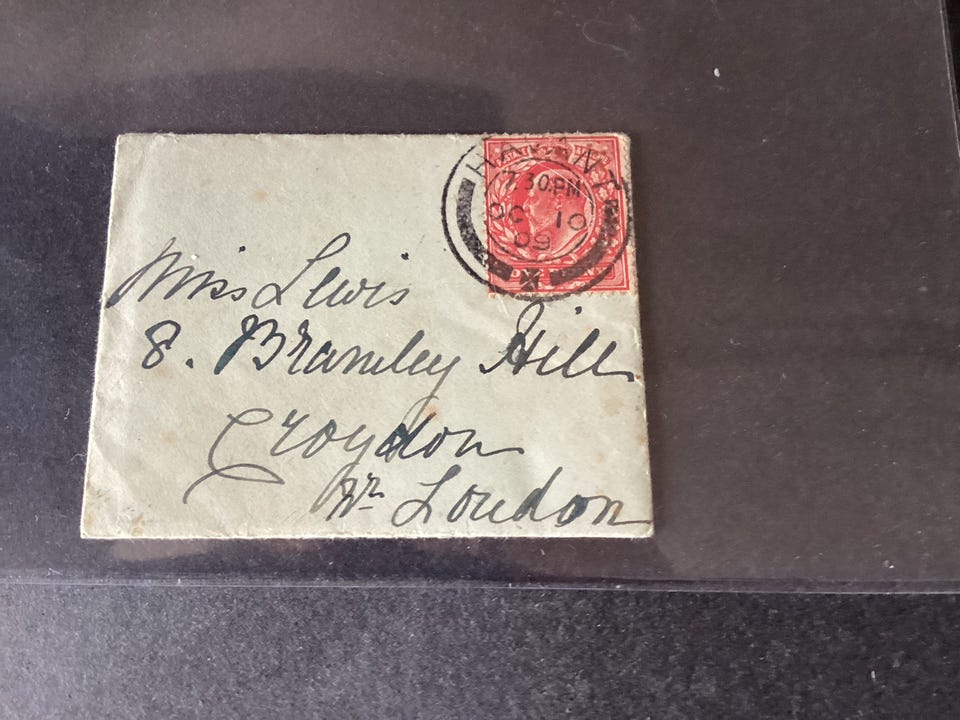 HAVANT
7.30.PM
OC 10
09
Miss Lewis
8. Bramley Hill
Croydon
Nr London